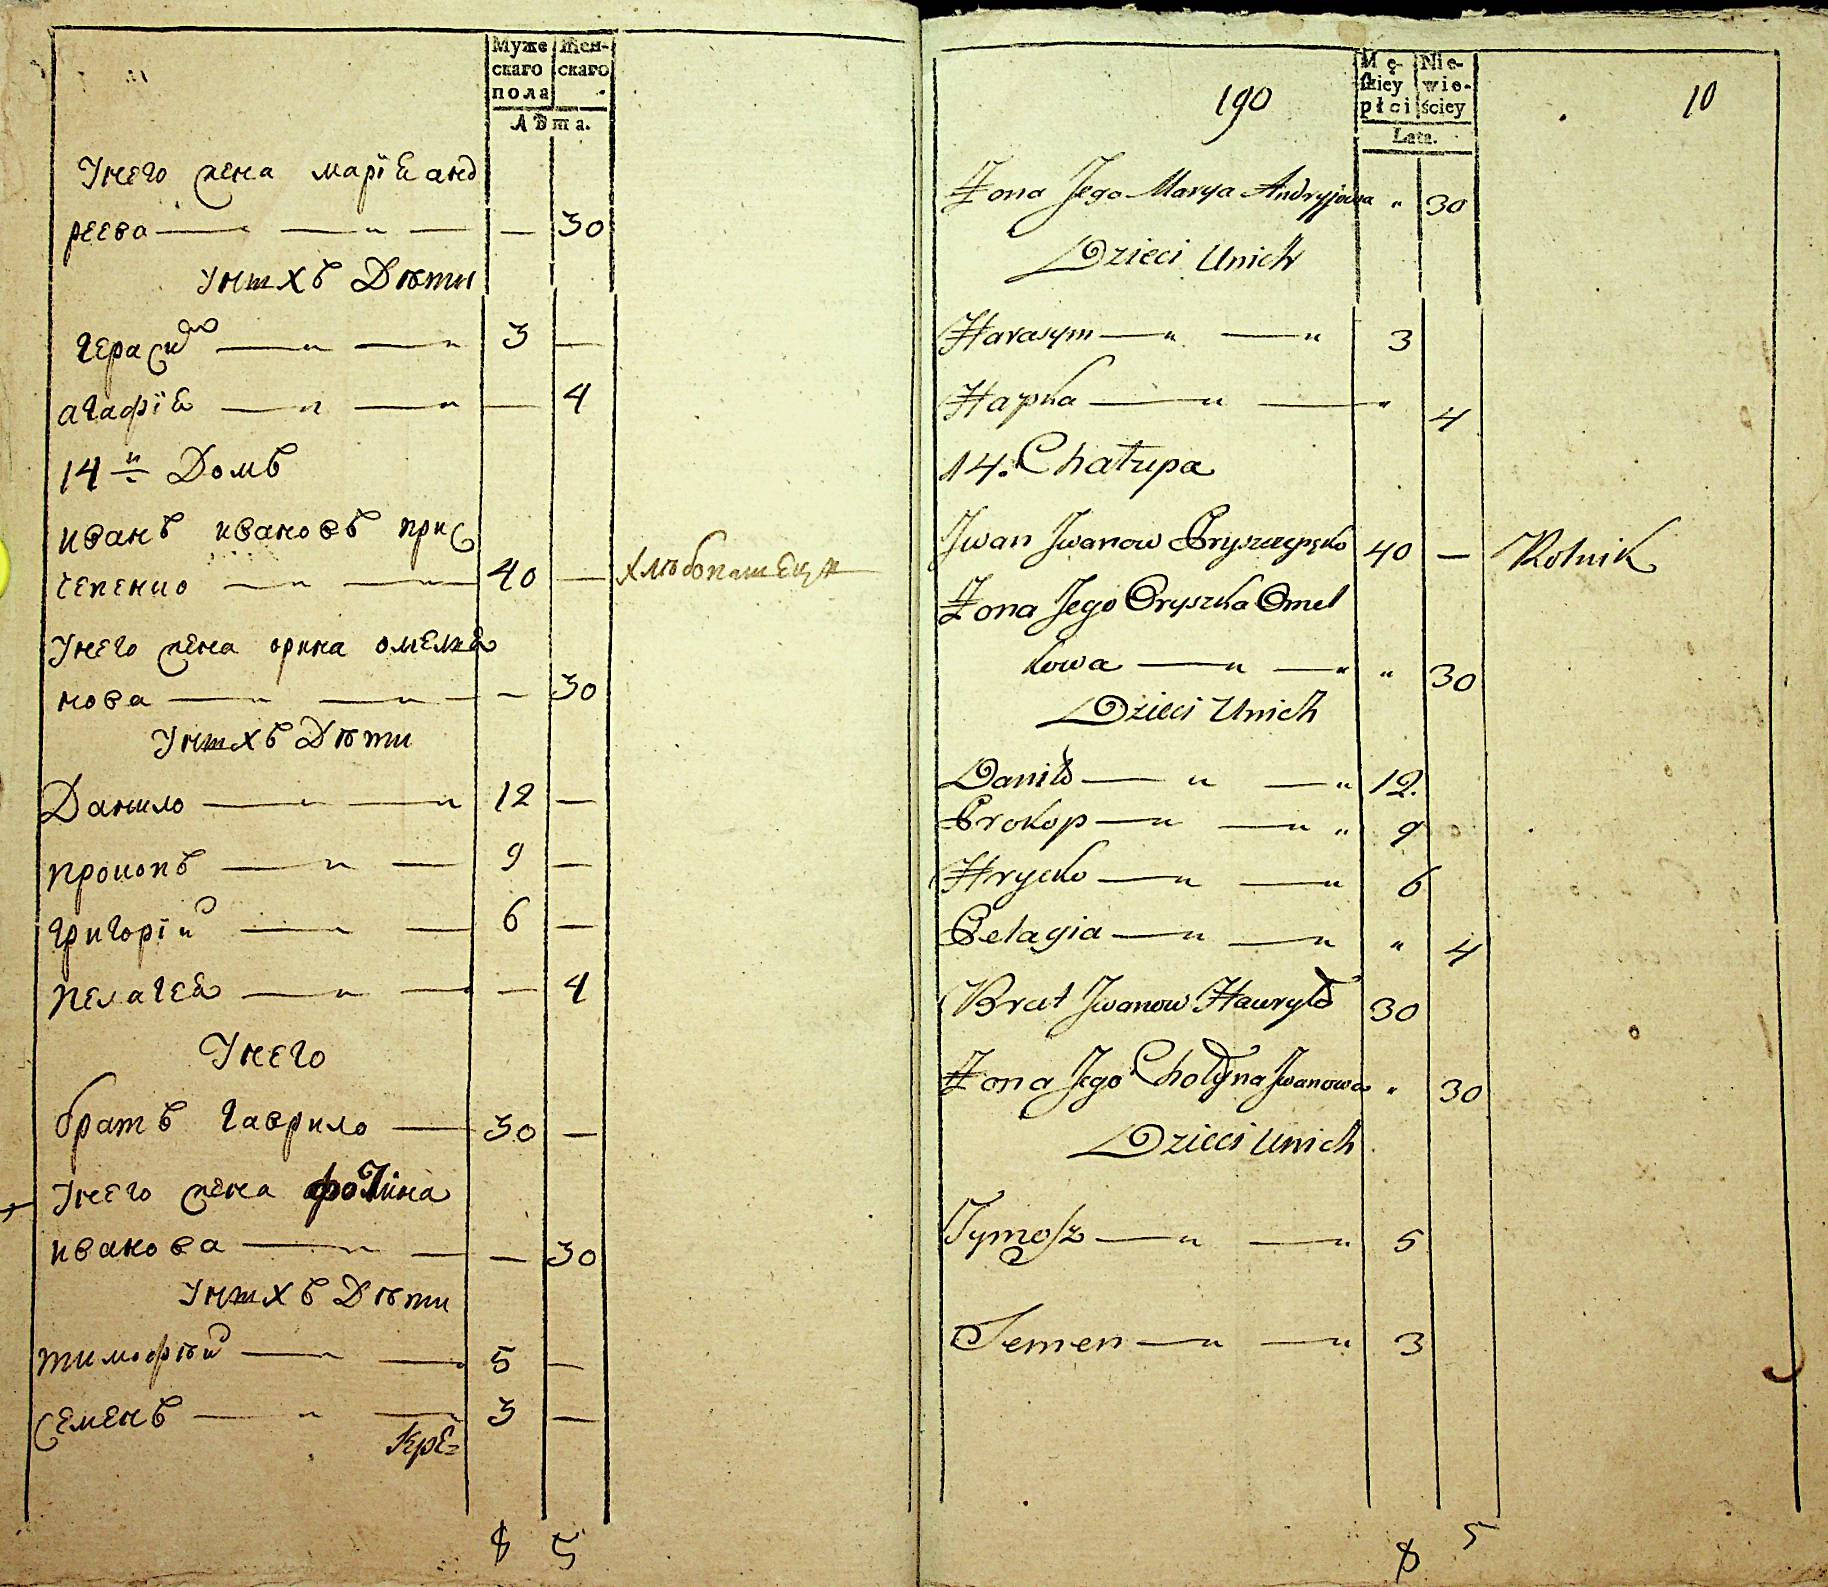 Муже скаго пола
Жен- скаго
Лѣта.
Унего жена марїя анд
реева — „ — „ — — 30
унихъ Дѣти
Герасимъ — „ — „ 3 —
агафїя — „ — „ — 4
14й Домъ
иванъ ивановъ прис
чепенко — „ — „ 40 — хлѣбопашецъ
Унего жена орина омелья
нова — „ — „ — — 30
Унихъ Дѣти
Данило — „ — „ 12 —
прокопъ — „ — 9 —
григорїй — „ — 6 —
пелагея — „ — — 4
Унего
братъ гаврило — 30 —
Унего жена фотина
иванова — „ — — 30
Унихъ Дѣти
тимофѣй — „ — 5 —
семенъ — „ — 3 —
Кре=
8 5
190
Mę- skiey płci
Nie- wie- ściey
Lata.
10
Żona Jego Marya Andryjowa „ 30
Dzieci Unich
Harasym — „ — „ 3
Hapka — „ — „ 4
14. Chałupa
Jwan Jwanow Pryszczepęko 40 — Rolnik
Żona Jego Oryszka Omel
kowa — „ — „ „ 30
Dzieci Unich
Daniło — „ — „ 12.
Prokop — „ — „ „ 9
Hrycko — „ — „ 6
Pelagia — „ — „ „ 4
Brat Jwanow Hawryło 30
Żona Jego Chotyna Jwanowa „ 30
Dzieci Unich
Tymosz — „ — „ 5
Semen — „ — „ 3
8 5